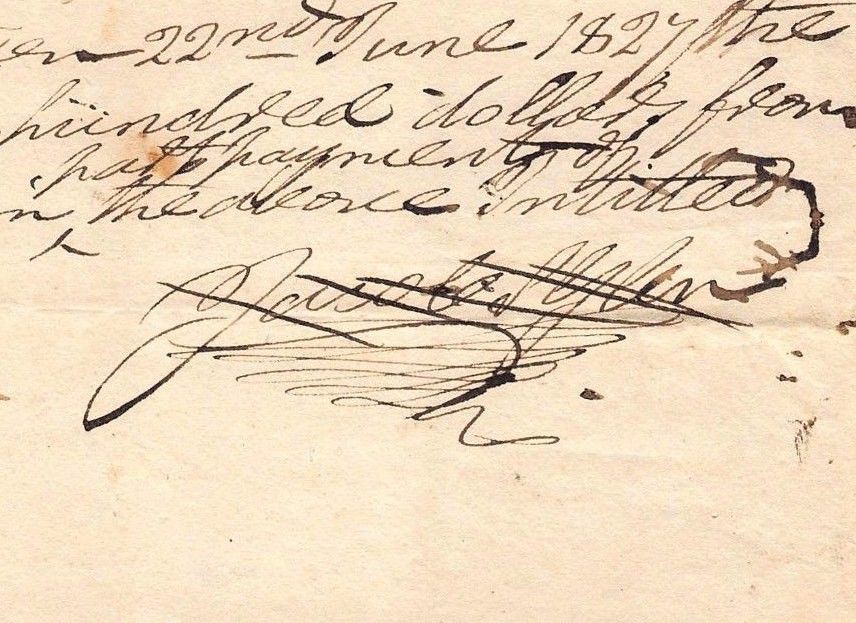 22nd June 1827 the
hundred dollars from
part payment of
in the above Intitled
Jacob